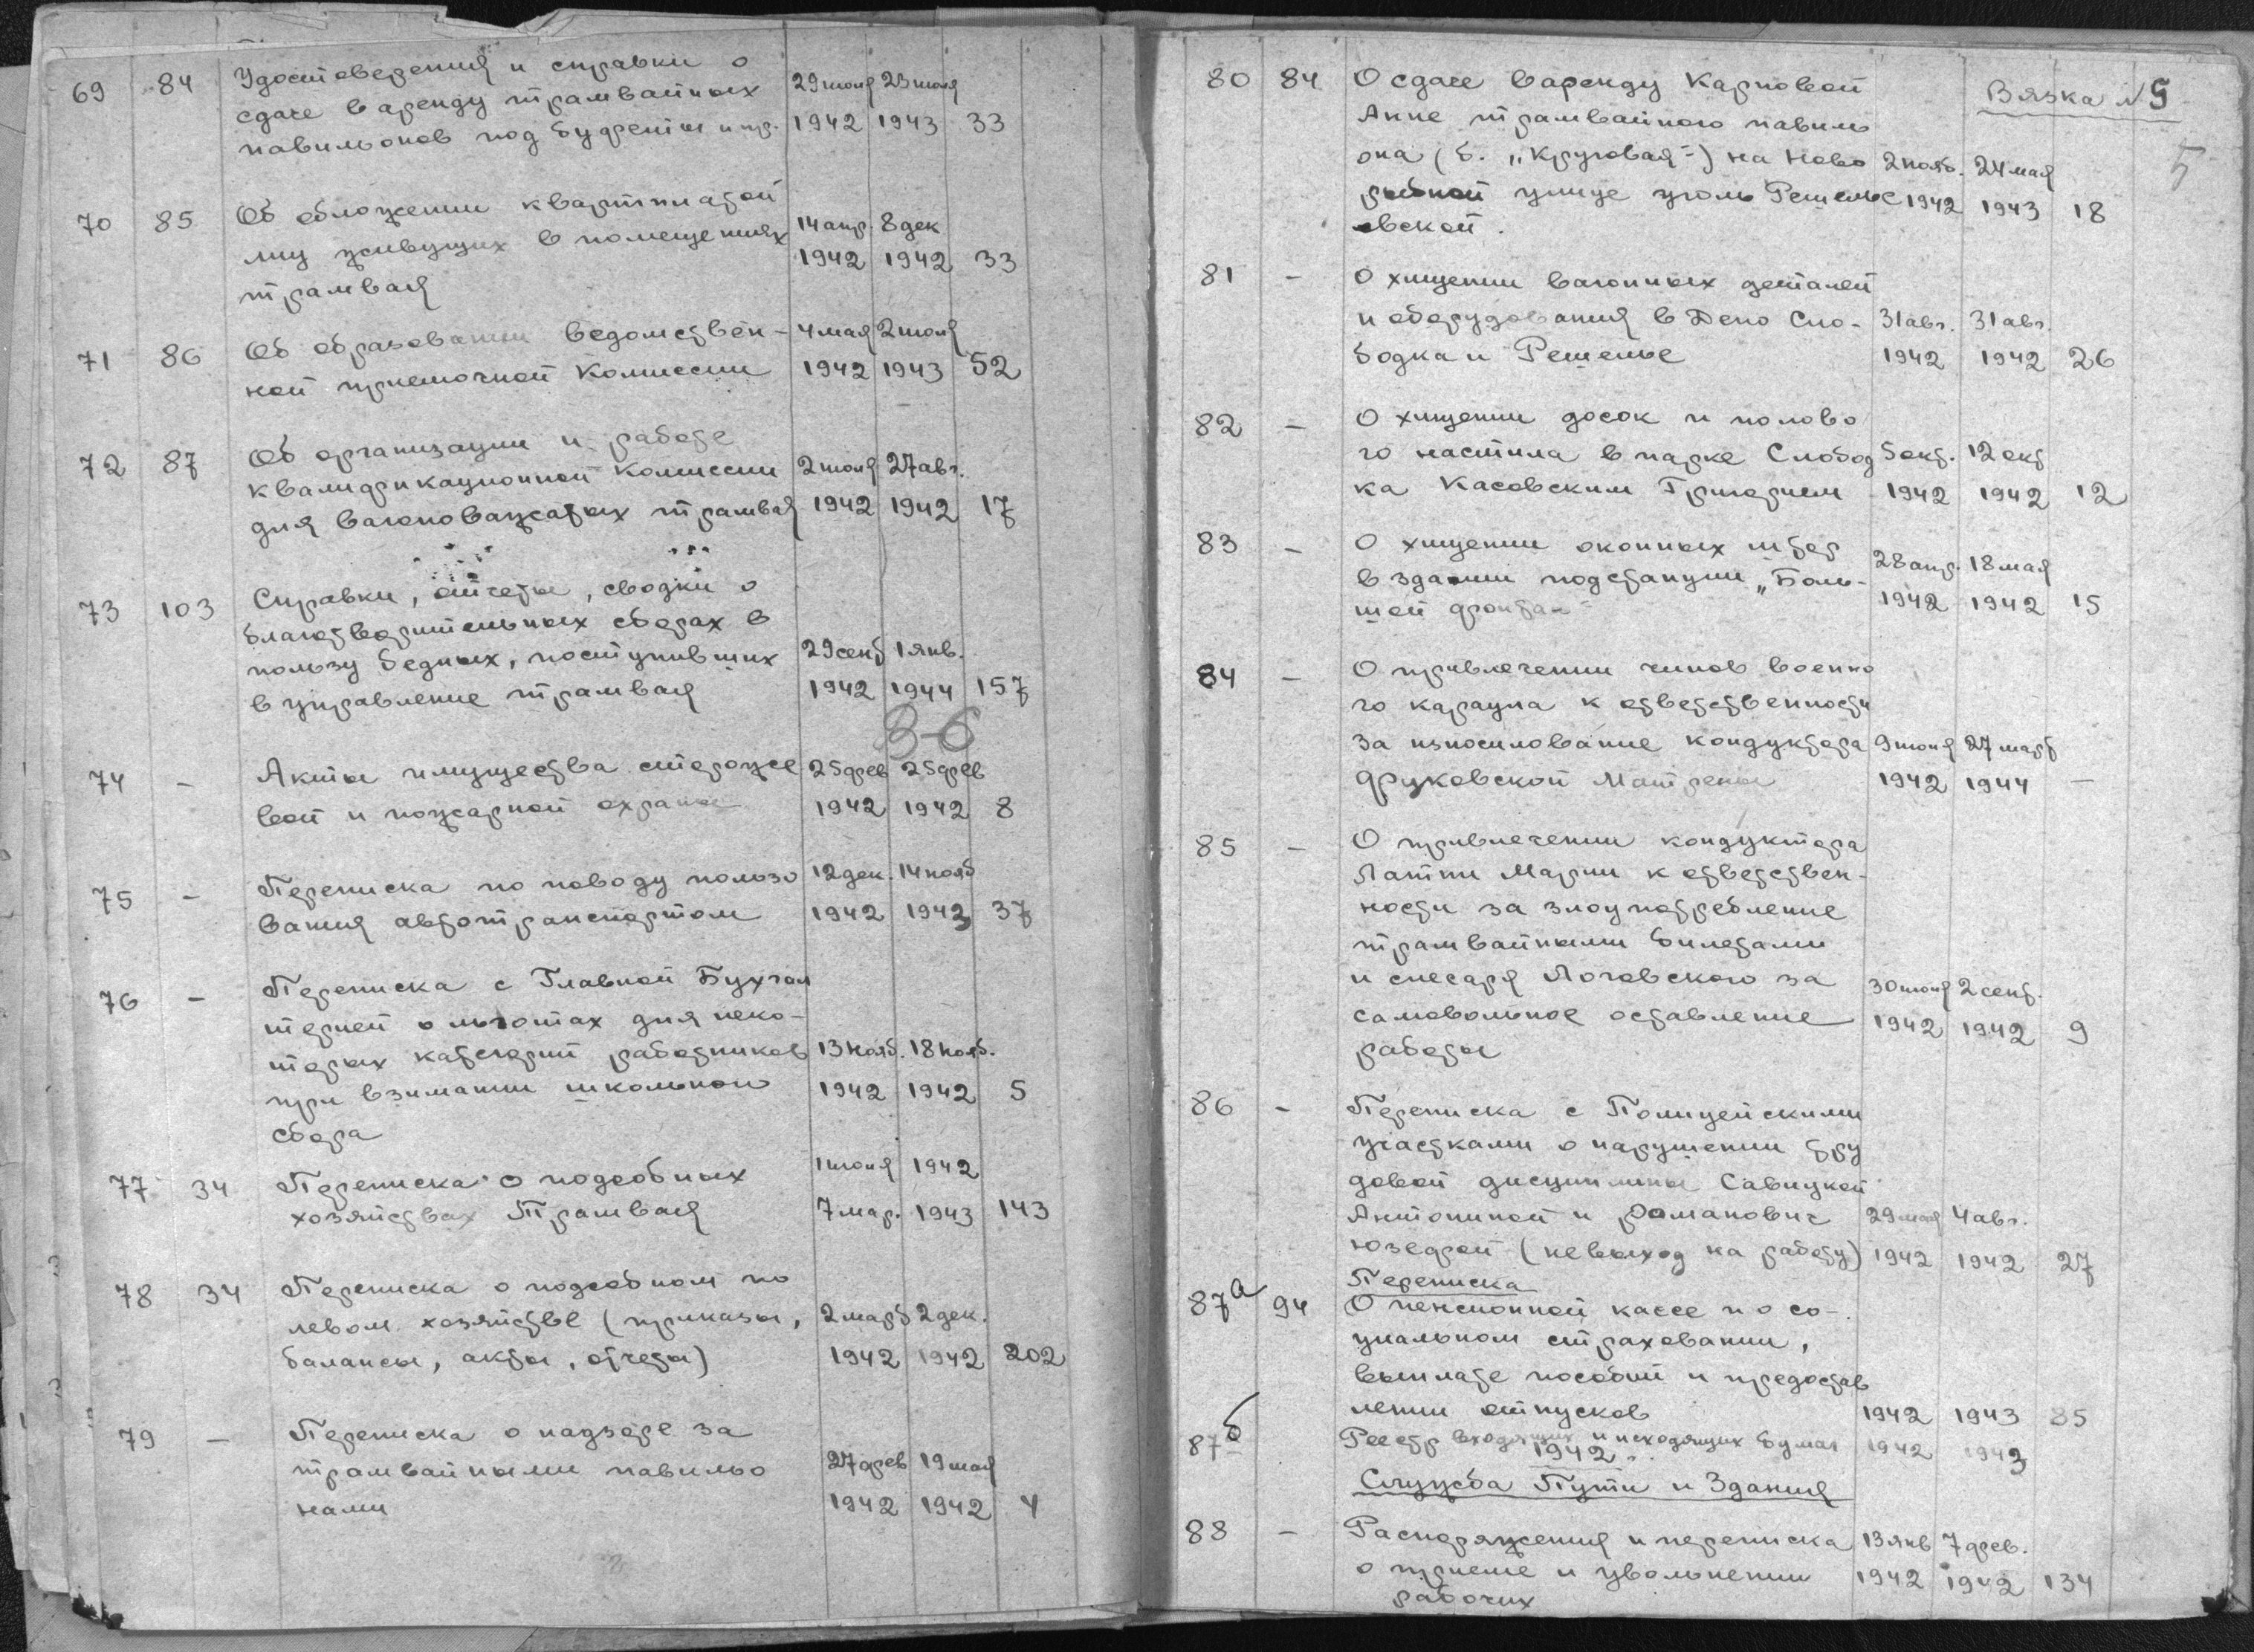 69 84 Удостоверения и справки о
сдаче в аренду трамвайных 29 июня 23 июля
павильонов под буфеты и пр. 1942 1943 33
70 85 Об обложении квартплатой
лиц живущих в помещениях 14 апр. 8 дек
трамвая 1942 1942 33
71 86 Об образовании ведомствен- 4 мая 2 июля
ной приемочной комиссии 1942 1943 52
72 87 Об организации и работе
квалификационной комиссии 2 июля 27 авг.
для вагоновожатых трамвая 1942 1942 17
73 103 Справки, отчеты, сводки о
благотворительных сборах в
пользу бедных, поступивших 29 сент 1 янв.
в управление трамвая 1942 1944 157
3-6
74 - Акты имущества стороже 25 фев 25 фев
вой и пожарной охраны 1942 1942 8
75 - Переписка по поводу пользо 12 дек. 14 нояб
вания автотранспортом 1942 1943 37
76 - Переписка с Главной Бухгал
терией о льготах для неко-
торых категорий работников 13 нояб. 18 нояб.
при взимании школьного 1942 1942 5
сбора
77 34 Переписка о подсобных 1 июня 1942
хозяйствах Трамвая 7 мар. 1943 143
78 34 Переписка о подсобном по
левом хозяйстве (приказы, 2 март 2 дек.
балансы, акты, отчеты) 1942 1942 202
79 - Переписка о надзоре за
трамвайными павильо 27 фев 19 мая
нами 1942 1942 4
Вязка № 5
5
80 84 О сдаче в аренду Карповой
Анне трамвайного павиль
она (б. „Круговая") на Ново 2 нояб. 24 мая
рыбной улице уголь Решелье 1942 1943 18
вской.
81 - О хищении вагонных деталей
и оборудования в Депо Сло- 31 авг. 31 авг.
бодка и Решелье 1942 1942 26
82 - О хищении досок и полово
го настила в парке Слобод 5 окт. 12 окт
ка Касовским Григорием 1942 1942 12
83 - О хищении оконных штор
в здании подстанции „Боль- 28 апр. 18 мая
шой фонтан" 1942 1942 15
84 - О привлечении чинов военно
го караула к ответственности
за изнасилование кондуктора 9 июня 27 март
Фруковской Матрены 1942 1944 -
85 - О привлечении кондуктора
Латти Марии к ответствен-
ности за злоупотребление
трамвайными билетами
и слесаря Логовского за 30 июня 2 сент.
самовольное оставление 1942 1942 9
работы
86 - Переписка с Полицейскими
участками о нарушении тру
довой дисциплины Савицкой
Антониной и Романович 29 мая 4 авг.
Юзефой (невыход на работу) 1942 1942 27
Переписка
87а 94 О пенсионной кассе и о со-
циальном страховании,
выплате пособий и предостав
лении отпусков 1942 1943 85
87б Реестр входящих и исходящих бумаг 1942 1943
1942.
Служба Пути и Здания
88 - Распоряжения и переписка 13 янв 7 фев.
о приеме и увольнении 1942 1942 134
рабочих